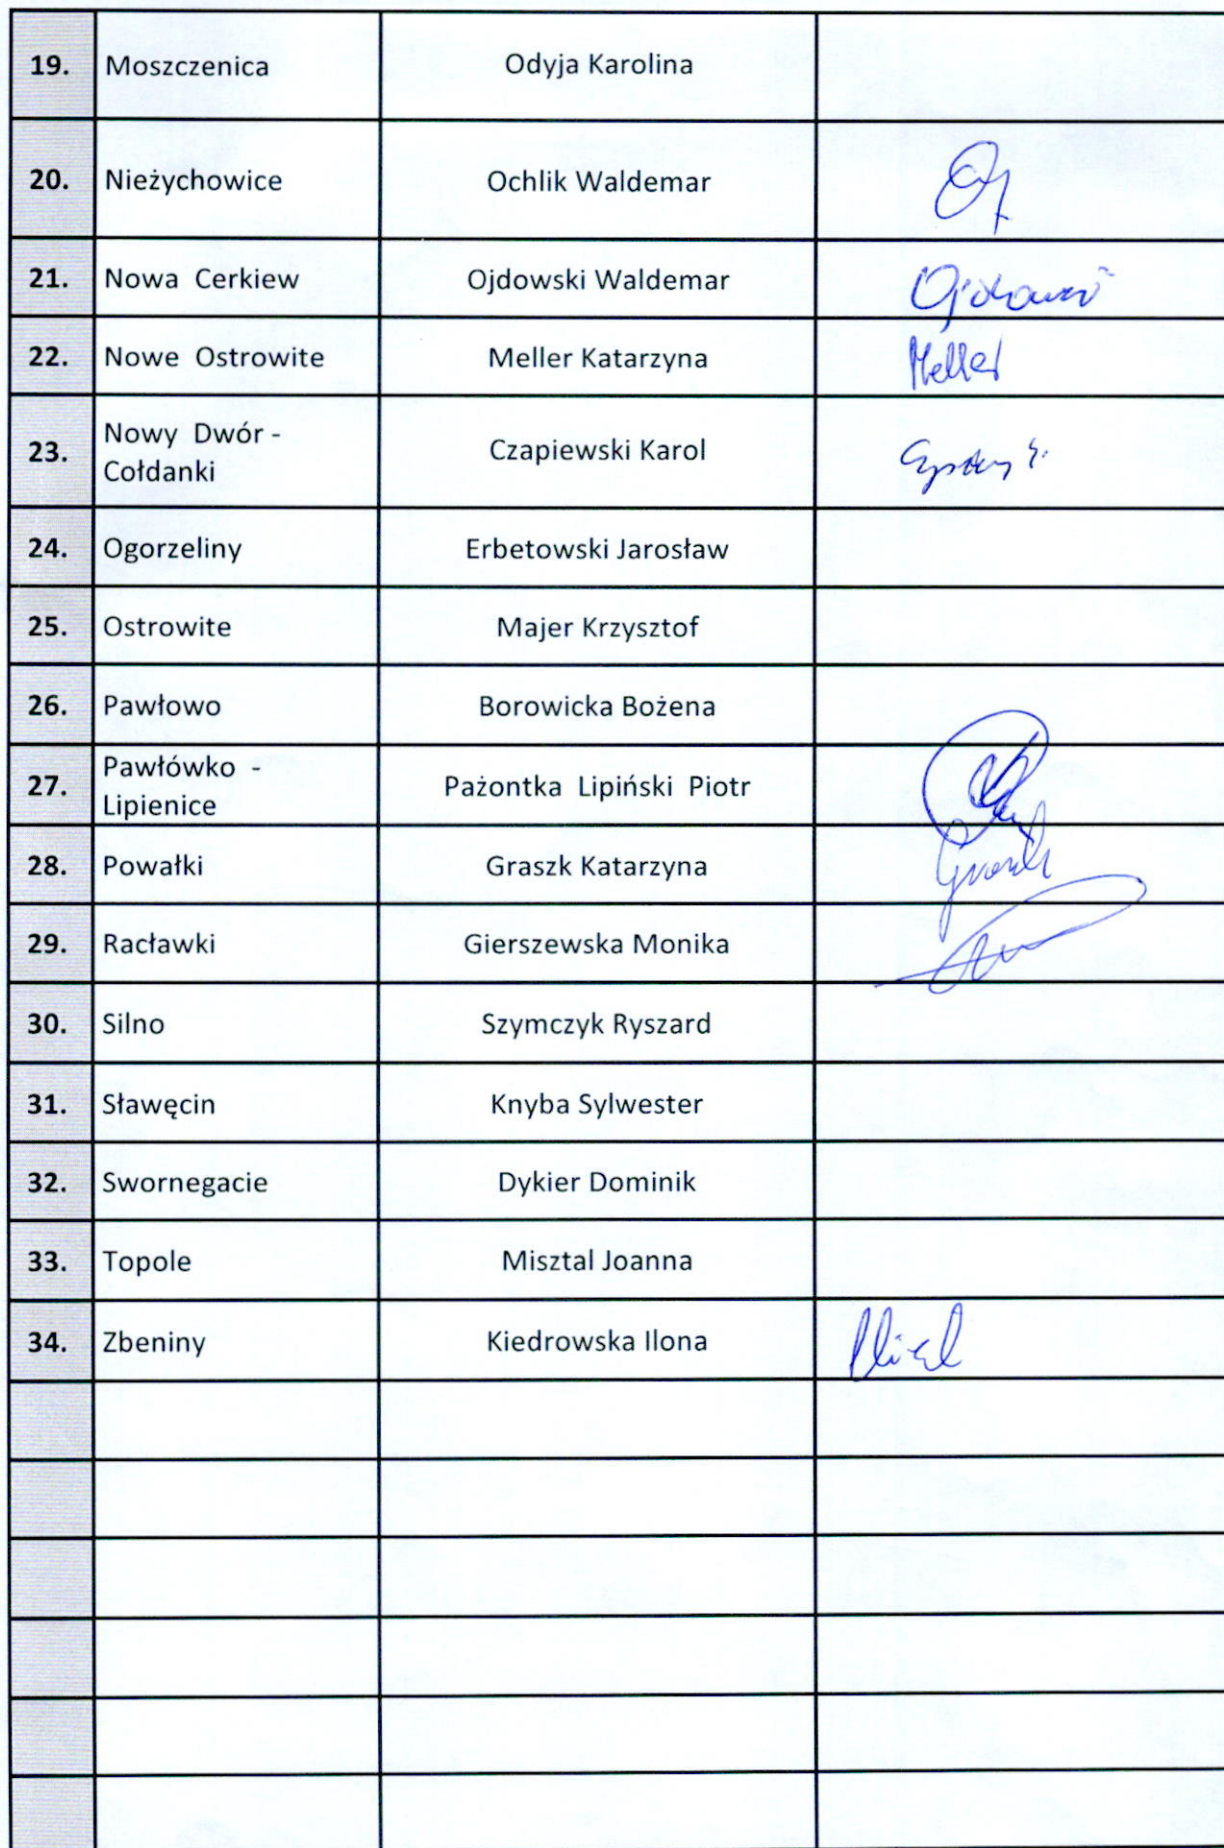 19. Moszczenica Odyja Karolina
20. Nieżychowice Ochlik Waldemar
21. Nowa Cerkiew Ojdowski Waldemar
22. Nowe Ostrowite Meller Katarzyna Meller
23. Nowy Dwór - Cołdanki Czapiewski Karol
24. Ogorzeliny Erbetowski Jarosław
25. Ostrowite Majer Krzysztof
26. Pawłowo Borowicka Bożena
27. Pawłówko - Lipienice Pażontka Lipiński Piotr
28. Powałki Graszk Katarzyna
29. Racławki Gierszewska Monika
30. Silno Szymczyk Ryszard
31. Sławęcin Knyba Sylwester
32. Swornegacie Dykier Dominik
33. Topole Misztal Joanna
34. Zbeniny Kiedrowska Ilona